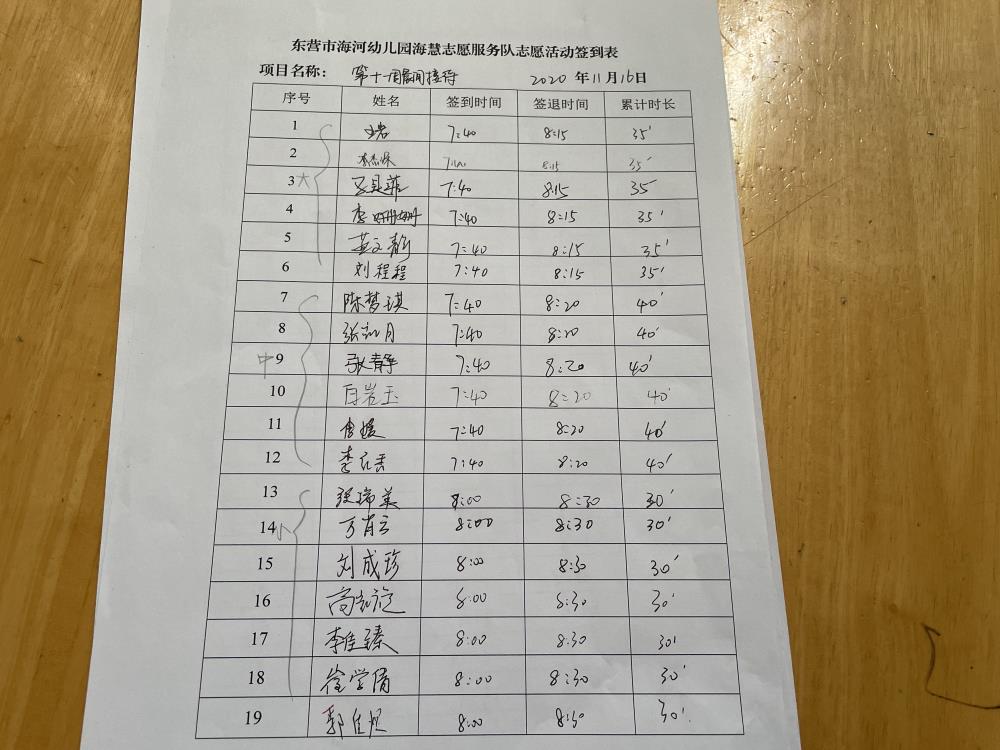 东营市海河幼儿园海慧志愿服务队志愿活动签到表
项目名称： 第十一周晨间接待 2020 年 11 月 16 日
序号 姓名 签到时间 签退时间 累计时长
1 7:40 8:15 35'
2 8:15 35'
大
3 7:40 8:15 35
4 李姗姗 7:40 8:15 35'
5 7:40 8:15 35'
6 刘程程 7:40 8:15 35'
7 陈梦琪 7:40 8:20 40'
8 7:40 8:20 40'
中
9 张静 7:40 8:20 40'
10 白岩玉 7:40 8:20 40'
11 7:40 8:20 40'
12 7:40 8:20 40'
13 张瑞英 8:00 8:30 30'
小
14 万肖云 8:00 8:30 30'
15 刘成珍 8:00 8:30 30'
16 8:00 8:30 30'
17 李佳臻 8:00 8:30 30'
18 徐学倩 8:00 8:30 30'
19 8:00 8:30 30'